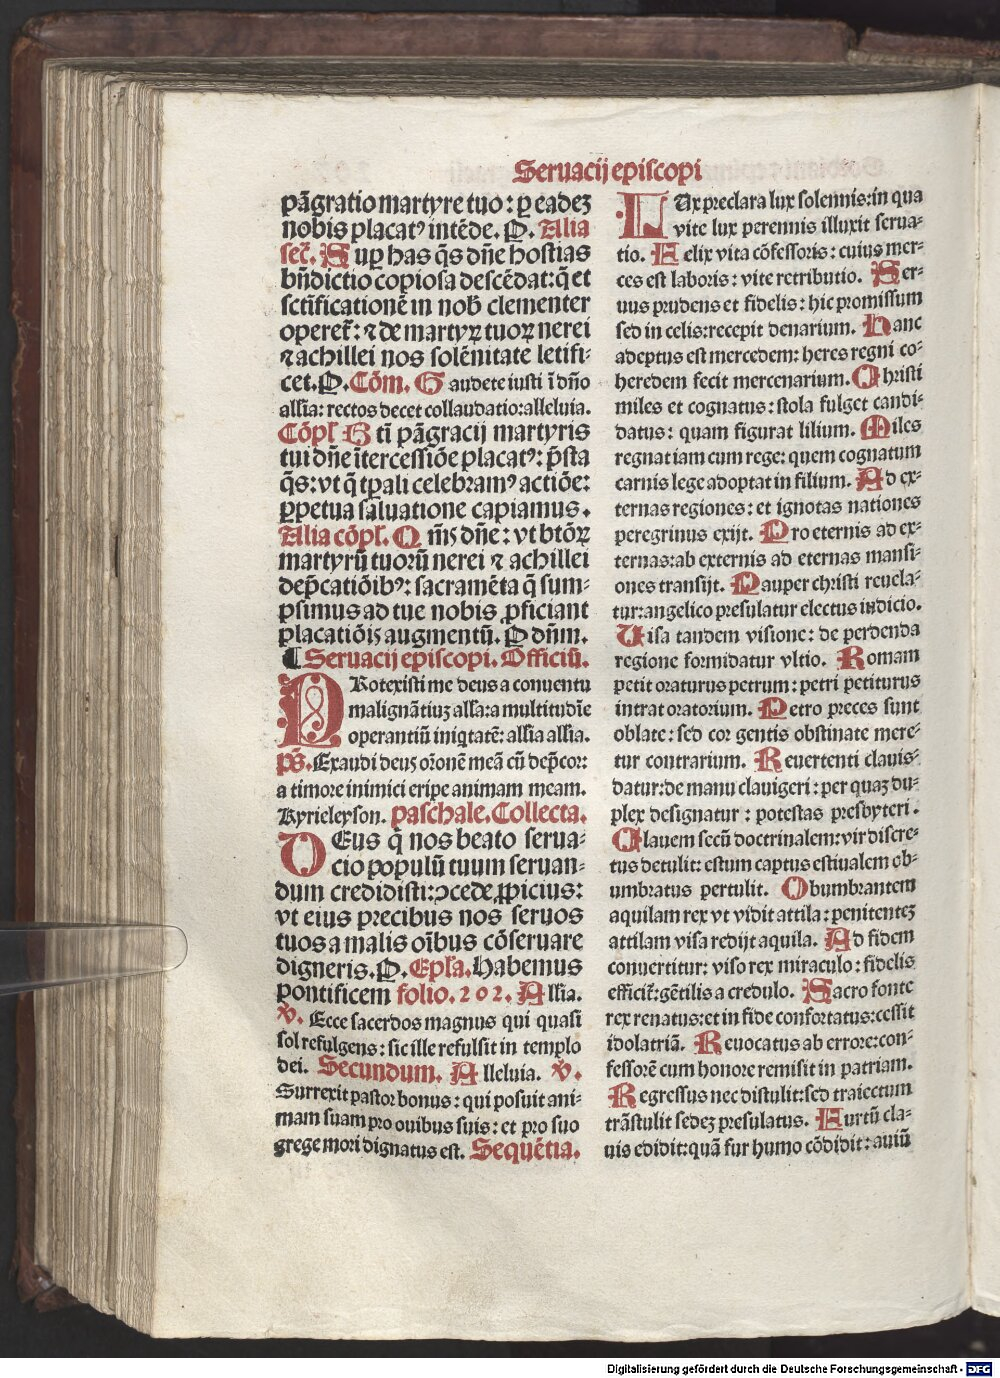 Seruacij episcopi
pãgratio martyre tuo: ꝑ eadeꝫ
nobis placatꝰ intẽde. P. Alia
secꝛ̃. Suꝑ has q̃s dñe hostias
bñdictio copiosa descẽdat: q̃ et
sctificationẽ in nob̃ clementer
operet᷑: ⁊ de martyrꝝ tuoꝝ nerei
⁊ achillei nos solẽnitate letifi-
cet. P. Cõm. Gaudete iusti ĩ dño
allĩa: rectos decet collaudatio: alleluia.
Cõpl̃ Btĩ pãgracij martyris
tui dñe ĩtercessiõe placatꝰ: p̃sta
q̃s: vt q̃ tꝑali celebramꝰ actiõe:
ꝑpetua saluatione capiamus.
Alia cõpl̃. Qm̃s dñe: vt btõꝝ
martyrũ tuorũ nerei ⁊ achillei
dep̃catiõibꝰ: sacramẽta q̃ sum-
psimus ad tue nobis ꝓficiant
placatiõis augmentũ. P dñm.
¶ Seruacij episcopi. Officiũ.
PRotexisti me deus a conuentu
malignãtiuꝫ alĩa: a multitudĩe
operantiũ iniq̇tatẽ: allĩa allĩa.
pš. Exaudi deus orõnẽ meã cũ dep̃cor:
a timore inimici eripe animam meam.
Kyrieleyson. paschale. Collecta.
DEus q̃ nos beato serua-
cio populũ tuum seruan-
dum credidisti: ꝯcede ꝓpicius:
vt eius precibus nos seruos
tuos a malis oĩbus cõseruare
digneris. P. Epl̃a. Habemus
pontificem folio. 202. Allĩa.
v̾. Ecce sacerdos magnus qui quasi
sol refulgens: sic ille refulsit in templo
dei. Secundum. Alleluia. v̾.
Surrexit pastor bonus: qui posuit ani-
mam suam pro ouibus suis: et pro suo
grege mori dignatus est. Sequẽtia.
LUx preclara lux solennis: in qua
vite lux perennis illuxit serua-
tio. Felix vita cõfessoris: cuius mer-
ces est laboris: vite retributio. Ser-
uus prudens et fidelis: hic promissum
sed in celis: recepit denarium. Hanc
adeptus est mercedem: heres regni co-
heredem fecit mercenarium. Christi
miles et cognatus: stola fulget candi-
datus: quam figurat lilium. Miles
regnat iam cum rege: quem cognatum
carnis lege adoptat in filium. Ad ex-
ternas regiones: et ignotas nationes
peregrinus exijt. Pro eternis ad ex-
ternas: ab externis ad eternas mansi-
ones transijt. Pauper christi reuela-
tur: angelico presulatur electus indicio.
Uisa tandem visione: de perdenda
regione formidatur vltio. Romam
petit oraturus petrum: petri petiturus
intrat oratorium. Petro preces sunt
oblate: sed cor gentis obstinate mere-
tur contrarium. Reuertenti clauis
datur: de manu clauigeri: per quaꝫ du-
plex designatur: potestas presbyteri.
Clauem secũ doctrinalem: vir discre-
tus detulit: estum captus estiualem ob-
umbratus pertulit. Obumbrantem
aquilam rex vt vidit attila: penitenteꝫ
attilam visa redijt aquila. Ad fidem
conuertitur: viso rex miraculo: fidelis
efficit᷑: gẽtilis a credulo. Sacro fonte
rex renatus: et in fide confortatus: cessit
idolatriã. Reuocatus ab errore: con-
fessorẽ cum honore remisit in patriam.
Regressus nec distulit: sed traiectum
trãstulit sedeꝫ presulatus. Furtũ cla-
uis edidit: quã fur humo cõdidit: auiũ
Digitalisierung gefördert durch die Deutsche Forschungsgemeinschaft - DFG